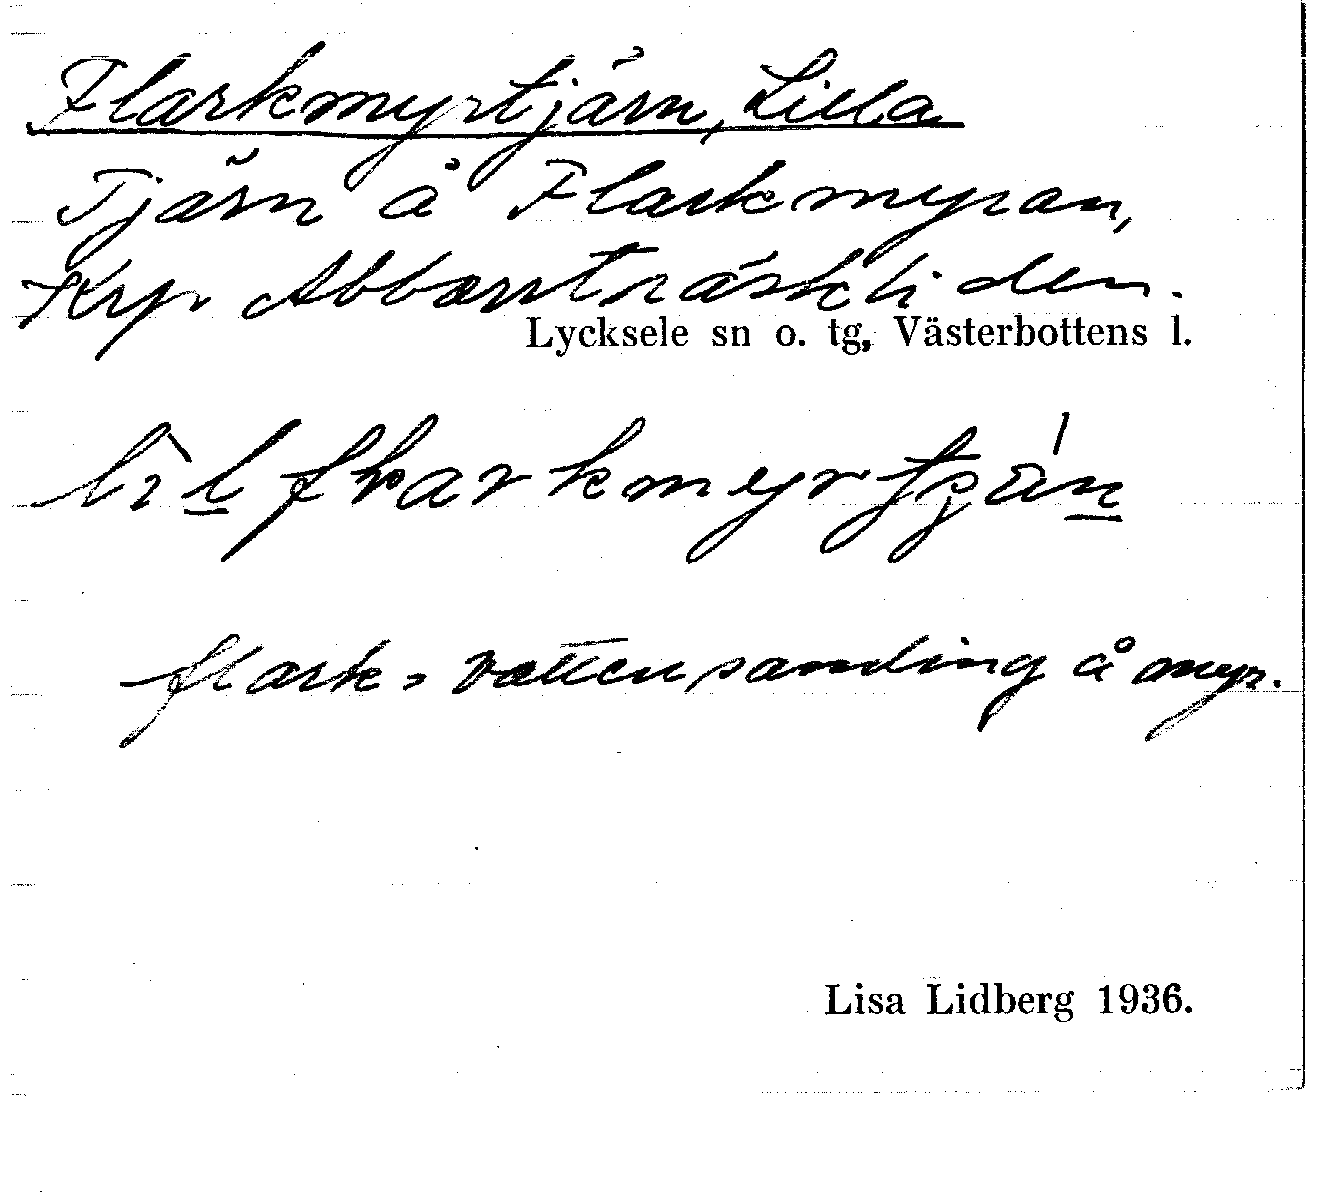 Flarkmyrtjärn, Lilla
Tjärn å Flarkmyran,
Krp. Abborrträskliden.
Lycksele sn o. tg, Västerbottens l.
flark = vattensamling å myr.
Lisa Lidberg 1936.